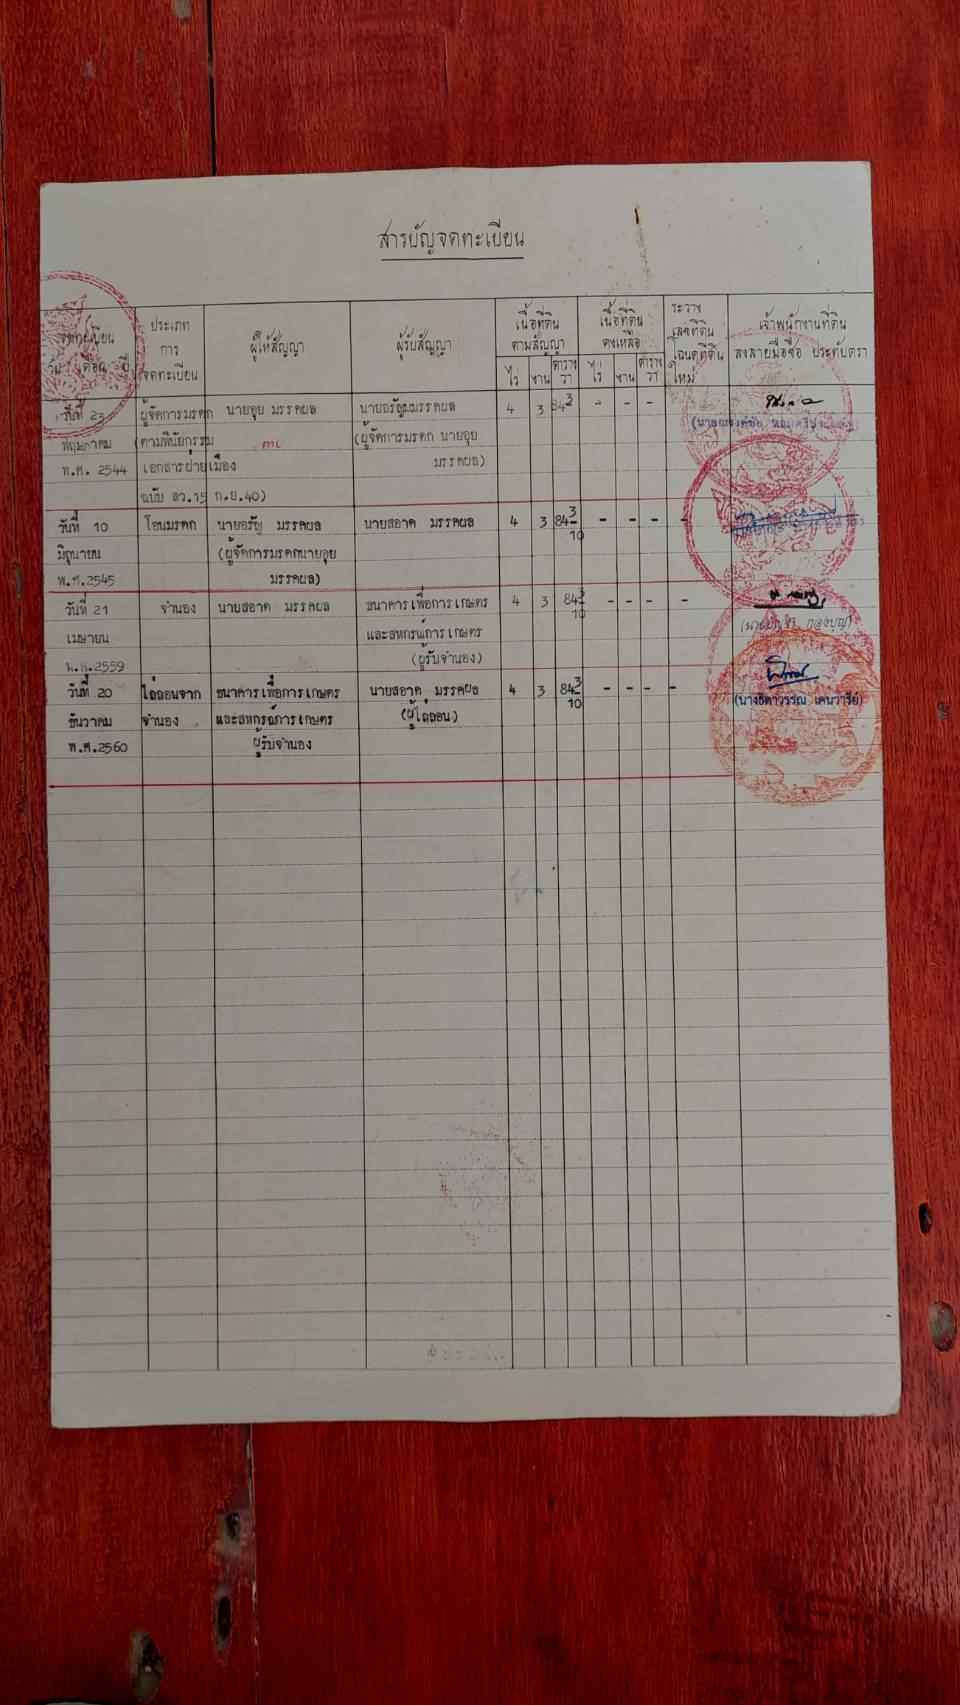 สารบัญจดทะเบียน
จดทะเบียน
วัน เดือน ปี
ประเภท
การ
จดทะเบียน
ผู้ให้สัญญา
ผู้รับสัญญา
เนื้อที่ดิน
ตามสัญญา
ไร่ งาน ตาราง วา
เนื้อที่ดิน
คงเหลือ
ไร่ งาน ตาราง วา
ระวาง
เลขที่ดิน
โฉนดที่ดิน
ใหม่
เจ้าพนักงานที่ดิน
ลงลายมือชื่อ ประทับตรา
วันที่ 23 ผู้จัดการมรดก นายอุย มรรคผล นายอรัญ มรรคผล 4 3 84 3 - - -
พฤษภาคม (ตามพินัยกรรม ตาย (ผู้จัดการมรดก นายอุย
พ.ศ. 2544 เอกสารฝ่ายเมือง มรรคผล)
ฉบับ ลว.15 ก.ย.40)
วันที่ 10 โอนมรดก นายอรัญ มรรคผล นายสอาด มรรคผล 4 3 84 3/10 - - - -
มิถุนายน (ผู้จัดการมรดกนายอุย
พ.ศ.2545 มรรคผล)
วันที่ 21 จำนอง นายสอาด มรรคผล ธนาคารเพื่อการเกษตร 4 3 84 3/10 - - - -
เมษายน และสหกรณ์การเกษตร
พ.ศ.2559 (ผู้รับจำนอง)
วันที่ 20 ไถ่ถอนจาก ธนาคารเพื่อการเกษตร นายสอาด มรรคผล 4 3 84 3/10 - - - -
ธันวาคม จำนอง และสหกรณ์การเกษตร (ผู้ไถ่ถอน)
พ.ศ.2560 ผู้รับจำนอง